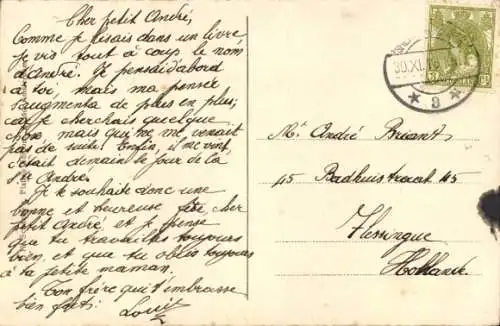 Cher petit André,
Comme je lisais dans un livre
je vis tout à coup le nom
d'André. Je pensai d'abord
à toi, mais ma pensée
augmenta de plus en plus;
car je cherchais quelque
chose, mais qui ne me venait
pas de suite. Enfin, il me vint
c'était demain le jour de la
Ste André.
Je te souhaite donc une
bonne et heureuse fête, cher
petit André, et je pense
que tu travailles toujours
bien, et que tu obéis toujours
à ta petite maman.
Ton frère qui t'embrasse
bien fort:
Louis
30.XI
3
Mr André Briant
45 Badhuisstraat 45
Flessingue
Hollande